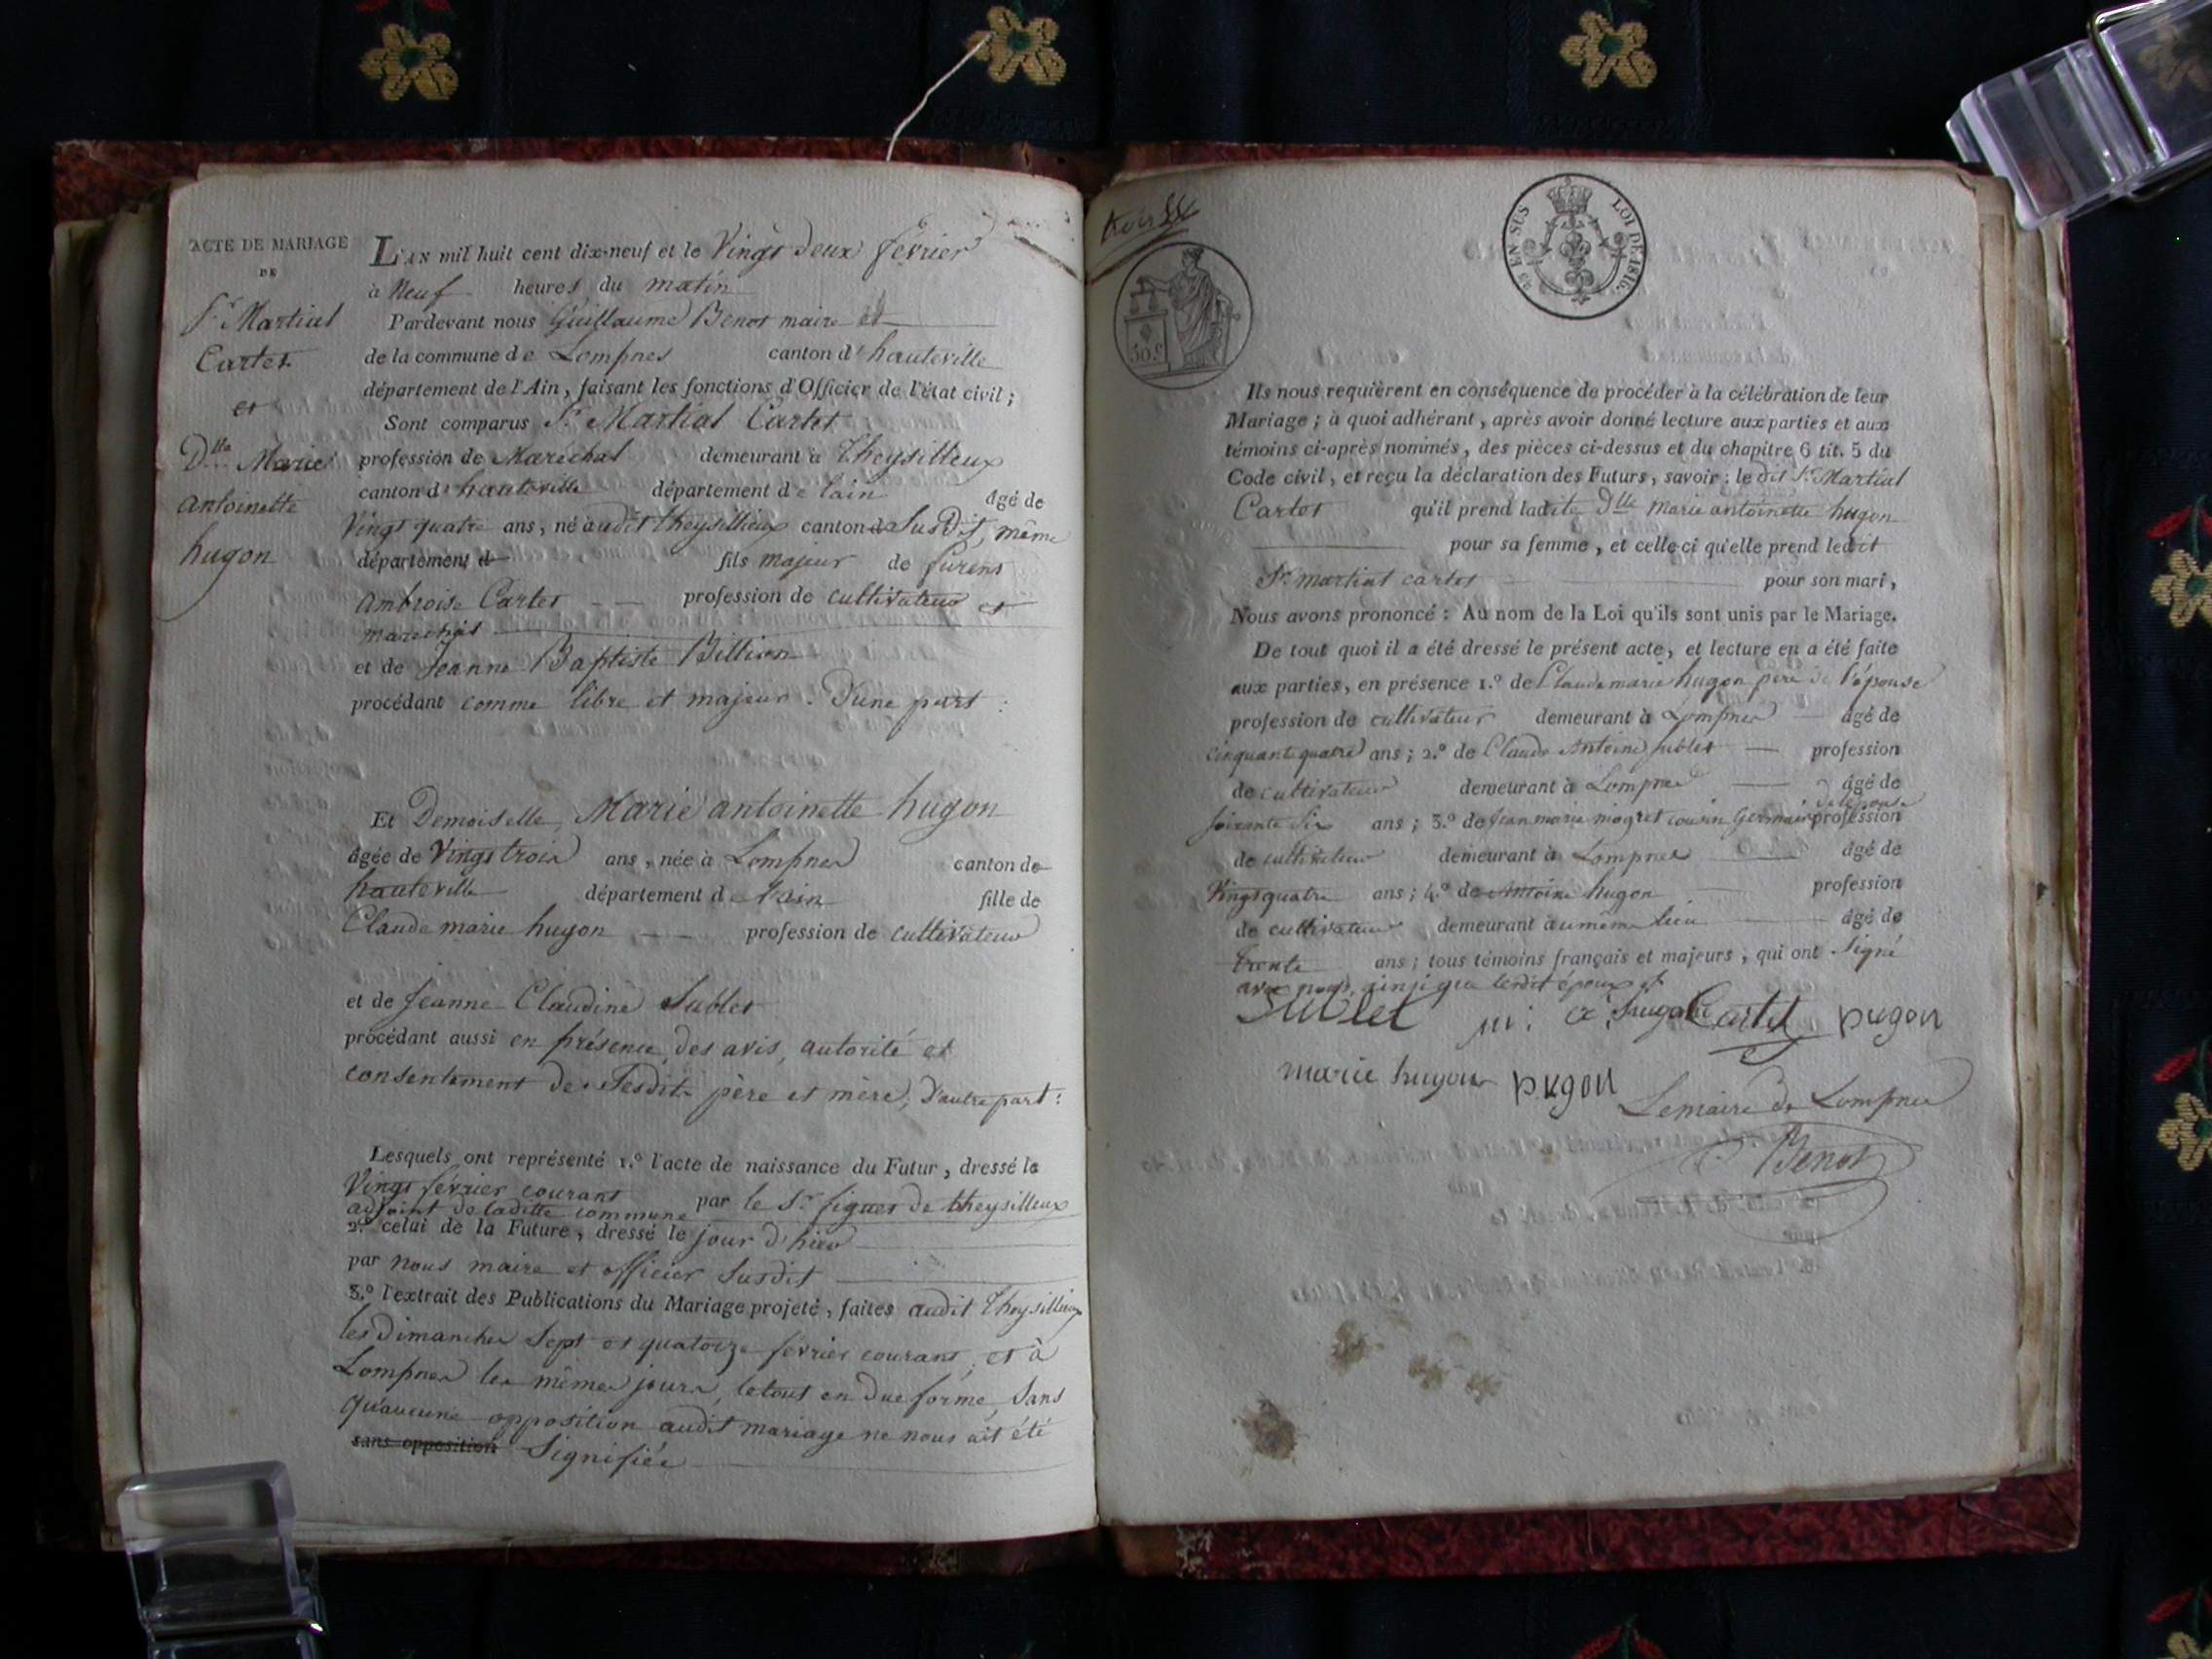 ACTE DE MARIAGE
DE
Sr Martial
Cartet
et
Dlle Marie
antoinette
hugon
L'AN mil huit cent dix-neuf et le Vingt deux février
à Neuf heures du matin
Pardevant nous Guillaume Benot maire et
de la commune de Lompnes canton d'hauteville
département de l'Ain, faisant les fonctions d'Officier de l'état civil;
Sont comparus Sr Martial Cartet
profession de Maréchal demeurant à Theysillieux
canton d'hauteville département de lain âgé de
Vingt quatre ans, né audit theysillieux canton de Susdit, même
département d fils majeur de furent
Ambroise Cartet profession de cultivateur et
maréchal
et de Jeanne Baptiste Billion
procédant comme libre et majeur. D'une part:
Et Demoiselle Marie antoinette hugon
âgée de Vingt trois ans, née à Lompnes canton de
hauteville département de l'ain fille de
Claude marie hugon profession de cultivateur
et de Jeanne Claudine Sublet
procédant aussi en présence, des avis, autorité et
consentement de Sesdits père et mère; D'autre part:
Lesquels ont représenté 1.º l'acte de naissance du Futur, dressé le
Vingt février courant par le Sr figuet de theysillieux
adjoint de laditte commune
2.º celui de la Future, dressé le jour d'hier
par nous maire et officier Susdit
3.º l'extrait des Publications du Mariage projeté, faites audit Theysillieux
les Dimanches Sept et quatorze février courant, et à
Lompnes les mêmes jours, le tout en due forme, Sans
qu'aucune opposition audit mariage ne nous ait été
sans opposition Signifiée
25 EN SUS LOI DE 1816.
50 c.
Ils nous requièrent en conséquence de procéder à la célébration de leur
Mariage; à quoi adhérant, après avoir donné lecture aux parties et aux
témoins ci-après nominés, des pièces ci-dessus et du chapitre 6 tit. 5 du
Code civil, et reçu la déclaration des Futurs, savoir: le dit Sr Martial
Cartet qu'il prend ladite Dlle marie antoinette hugon
pour sa femme, et celle-ci qu'elle prend ledit
Sr martial cartet pour son mari,
Nous avons prononcé: Au nom de la Loi qu'ils sont unis par le Mariage.
De tout quoi il a été dressé le présent acte, et lecture en a été faite
aux parties, en présence 1.º de Claude marie hugon père de l'épouse
profession de cultivateur demeurant à Lompnes âgé de
cinquante quatre ans; 2.º de Claude Antoine Sublet profession
de cultivateur demeurant à Lompnes âgé de
soixante Six ans; 3.º de Jean marie migret cousin Germain de lépouse profession
de cultivateur demeurant à Lompnes âgé de
Vingt quatre ans; 4.º de Antoine hugon profession
de cultivateur demeurant au même lieu âgé de
trente ans; tous témoins français et majeurs, qui ont Signé
avec nous, ainsi que lesdit époux et
SUblet Cartet pugon
marie hugon pugon
Le maire de Lompnes
Benot